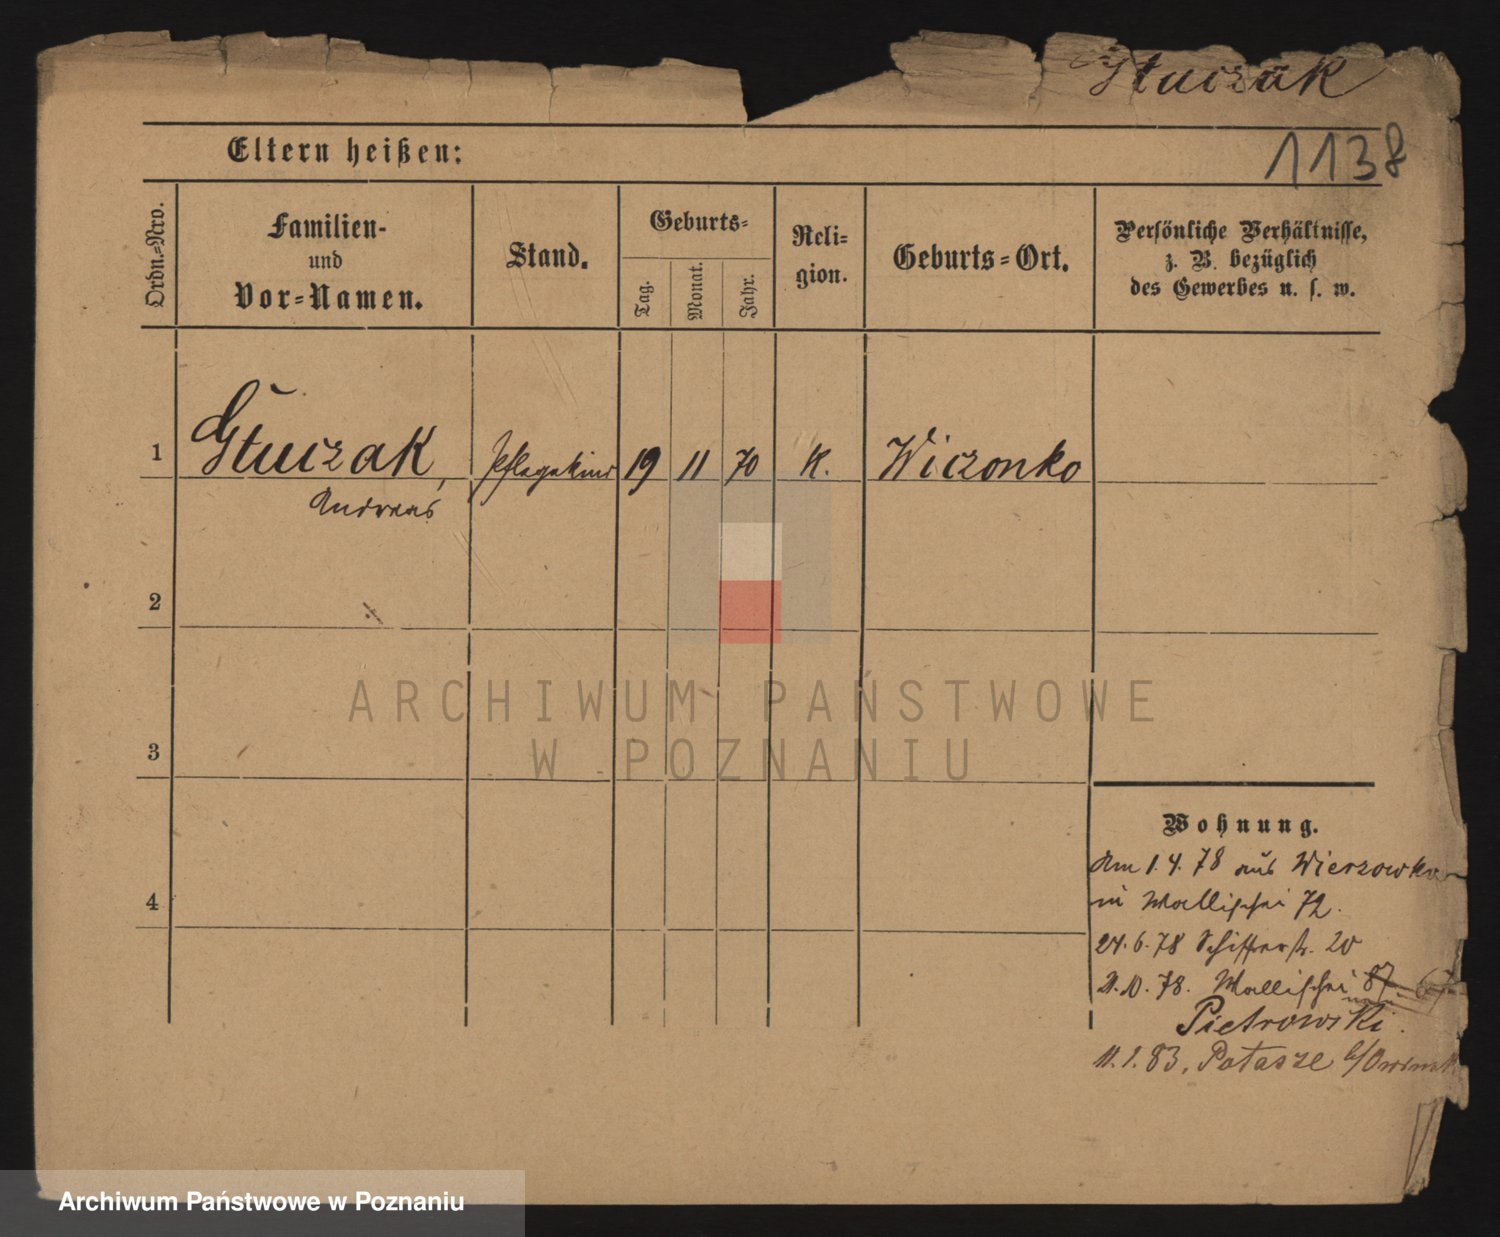 Gtuczak
1138
Eltern heißen:
Ordn.-Nro.
Familien-
und
Vor-Namen.
Stand.
Geburts-
Tag.
Monat.
Jahr.
Reli-
gion.
Geburts-Ort.
Persönliche Verhältnisse,
z. B. bezüglich
des Gewerbes u. s. w.
1
Gtuczak,
Andreas
Pflegekind
19
11
70
K.
Wiczonko
2
3
4
Wohnung.
Am 1.4.78 aus
in Wallischei 72.
24.6.78 Schifferstr. 20
2.10.78. Wallischei 87
Pietrowski.
11.1.83. Potasze b/
ARCHIWUM PAŃSTWOWE
W POZNANIU
Archiwum Państwowe w Poznaniu